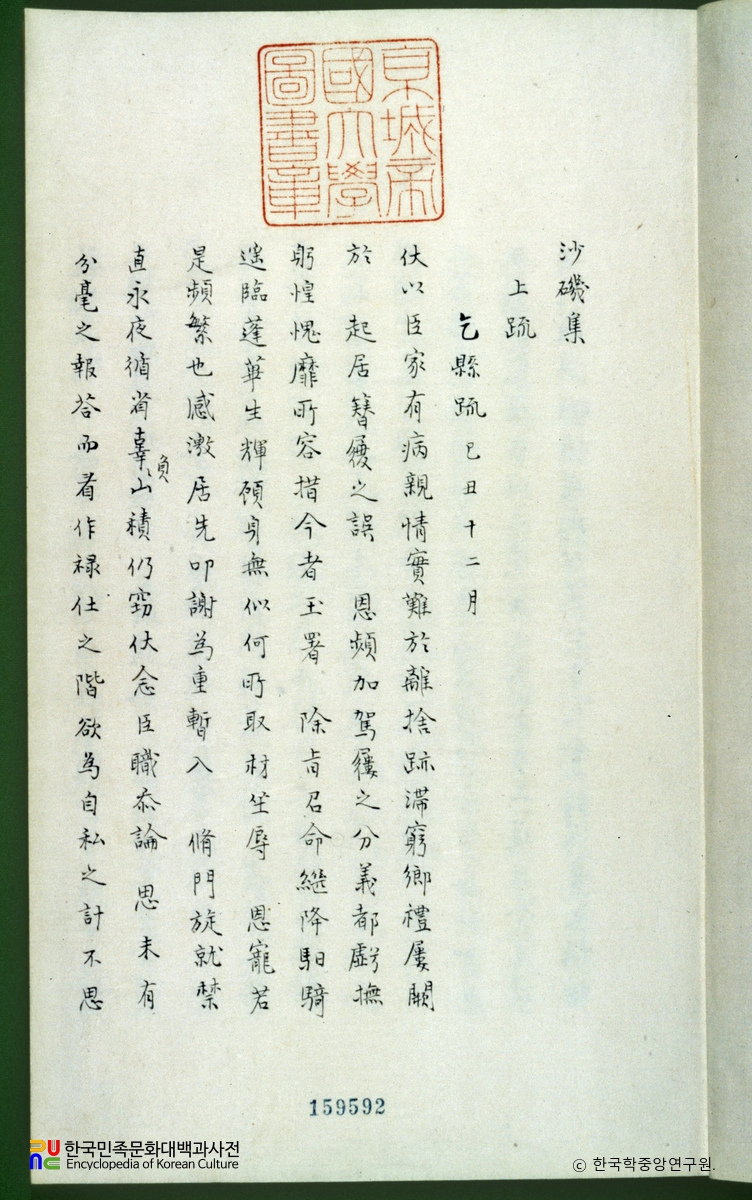 京城帝
國大學
圖書章
沙磯集
上疏
乞縣疏 己丑十二月
伏以臣家有病親情實難於離捨跡滯窮鄉禮屢闕
於 起居簪履之誤 恩頻加駕屨之分義都虧撫
躬惶愧靡所容措今者玉署 除旨召命繼降馹騎
遙臨蓬蓽生輝顧身無似何所取材坐辱 恩寵若
是頻繁也感激居先叩謝為重暫入 脩門旋就禁
直永夜循省辜負山積仍竊伏念臣職忝論思未有
分毫之報答而看作祿仕之階欲為自私之計不思
159592
한국민족문화대백과사전
Encyclopedia of Korean Culture
© 한국학중앙연구원.